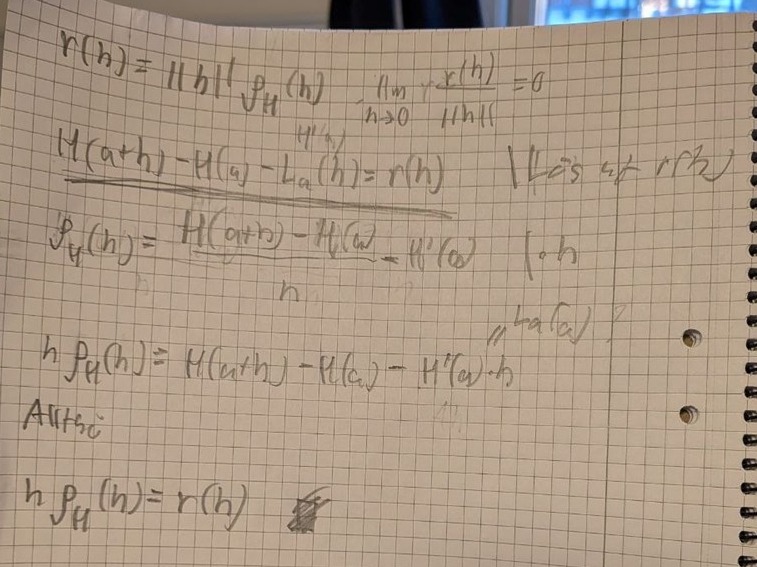 r(h) = ||h|| ρ_H(h)   lim_{h→0} r(h)/||h|| = 0
H'(a)
H(a+h) - H(a) - L_a(h) = r(h)
ρ_H(h) = (H(a+h) - H(a))/h - H'(a)
h ρ_H(h) = H(a+h) - H(a) - H'(a)·h
Alltså
h ρ_H(h) = r(h)